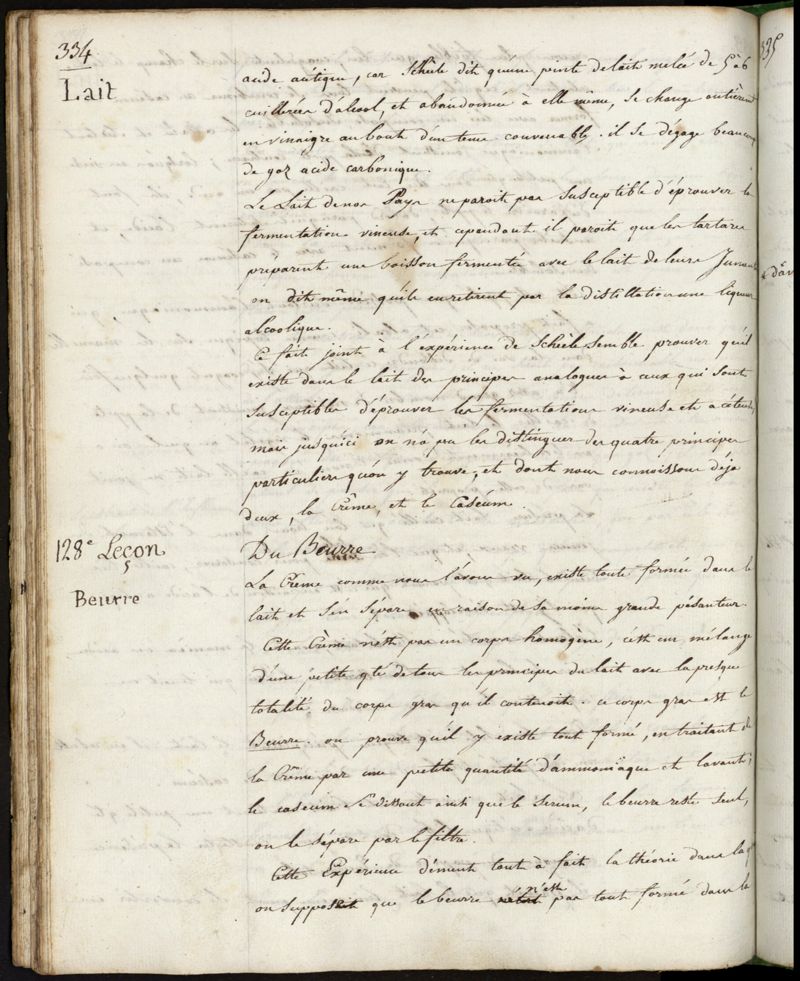 334
Lait
acide acétique, car Schéele dit qu'une pinte de lait melée de 5 à 6
cuillerées d'alcool, et abandonnée à elle même, se change entièrem
en vinaigre au bout d'un tems convenable. il se dégage beaucoup
de gaz acide carbonique.
Le Lait de nos Pays ne paroit pas susceptible d'éprouver la
fermentation vineuse, et cependant il paroit que les tartares
préparent une boisson fermenté avec le lait de leurs Jumen
on dit même qu'ils en retirent par la distillation une liqueur
alcoolique.
Ce fait joint à l'éxpérience de Schéele semble prouver qu'il
existe dans le lait des principes analogues à ceux qui sont
susceptibles d'éprouver les fermentations vineuse et acéteuse
mais jusqu'ici on n'a pu les distinguer des quatre principes
particuliers qu'on y trouve, et dont nous connoissons déja
deux, la Crême, et le Caséum.
128e Leçon
Du Beurre
Beurre
La Crême comme nous l'avons vu, existe toute formée dans le
lait et s'en sépare en raison de sa moins grande pésanteur.
Cette Crême n'est pas un corps homogène, c'est un mélange
d'une petite qté de tous les principes du lait avec la presque
totalité du corps gras qu'il contenoit. ce corps gras est le
Beurre. on prouve qu'il y existe tout formé, en traitant de
la Crême par une petite quantité d'ammoniaque et lavant;
le caseum se dissout ainsi que le serum, le beurre reste seul,
on le sépare par le filtre.
Cette Expérience dément tout à fait la théorie dans la q
on supposait que le beurre n'est pas tout formé dans la
335